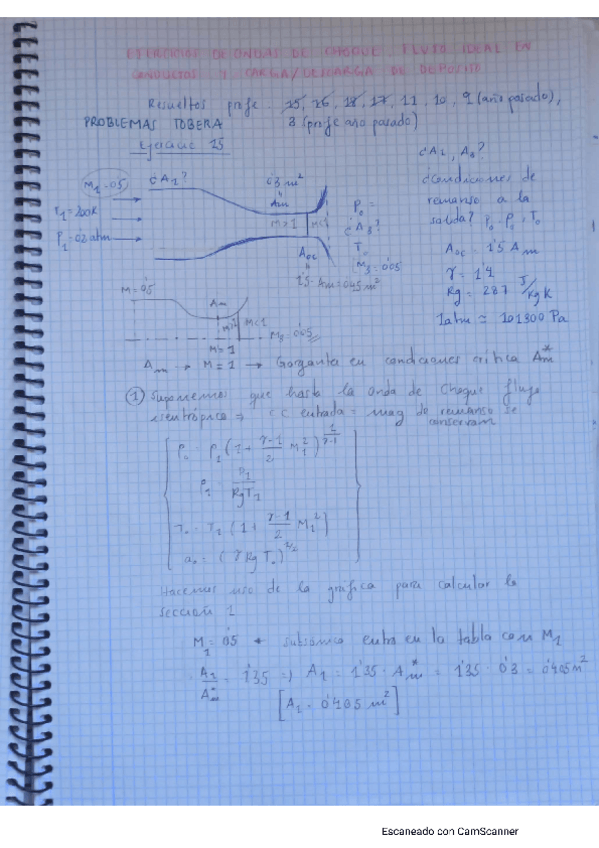 EJERCICIOS DE ONDAS DE CHOQUE, FLUJO IDEAL EN
CONDUCTOS Y CARGA/DESCARGA DE DEPÓSITO
Resueltos profe: 15, 16, 18, 17, 11, 10, 9 (año pasado),
PROBLEMAS TOBERA 3 (profe año pasado)
Ejercicio 15
¿A1, A3?
M1=0'5 ¿A1? 0'3 m²
Am
¿Condiciones de
remanso a la
salida? ρo, Po, To
T1=200K
P1=0'2 atm
M>1 M<1
Po =
¿A3?
To
M3=0'05
Aoc
1'5·Am=0'45 m²
Aoc = 1'5 Am
γ = 1'4
Rg = 287 J/kg K
1atm ≃ 101300 Pa
M=0'5
Am
M>1 M<1
M3=0'05
M=1
Am → M=1 → Garganta en condiciones crítica Am*
① Suponemos que hasta la onda de choque flujo
isentrópico ⇒ cc entrada = mag de remanso se
conservan
ρo = ρ1 (1 + γ-1/2 M1²)^1/γ-1
ρ1 = P1/RgT1
To = T1 (1 + γ-1/2 M1²)
ao = (γ Rg To)^1/2
Hacemos uso de la gráfica para calcular la
sección 1
M1 = 0'5 → subsónico entro en la tabla con M1
A1/Am* = 1'35 ⇒ A1 = 1'35 · Am* = 1'35 · 0'3 = 0'405 m²
[A1 = 0'405 m²]
Escaneado con CamScanner